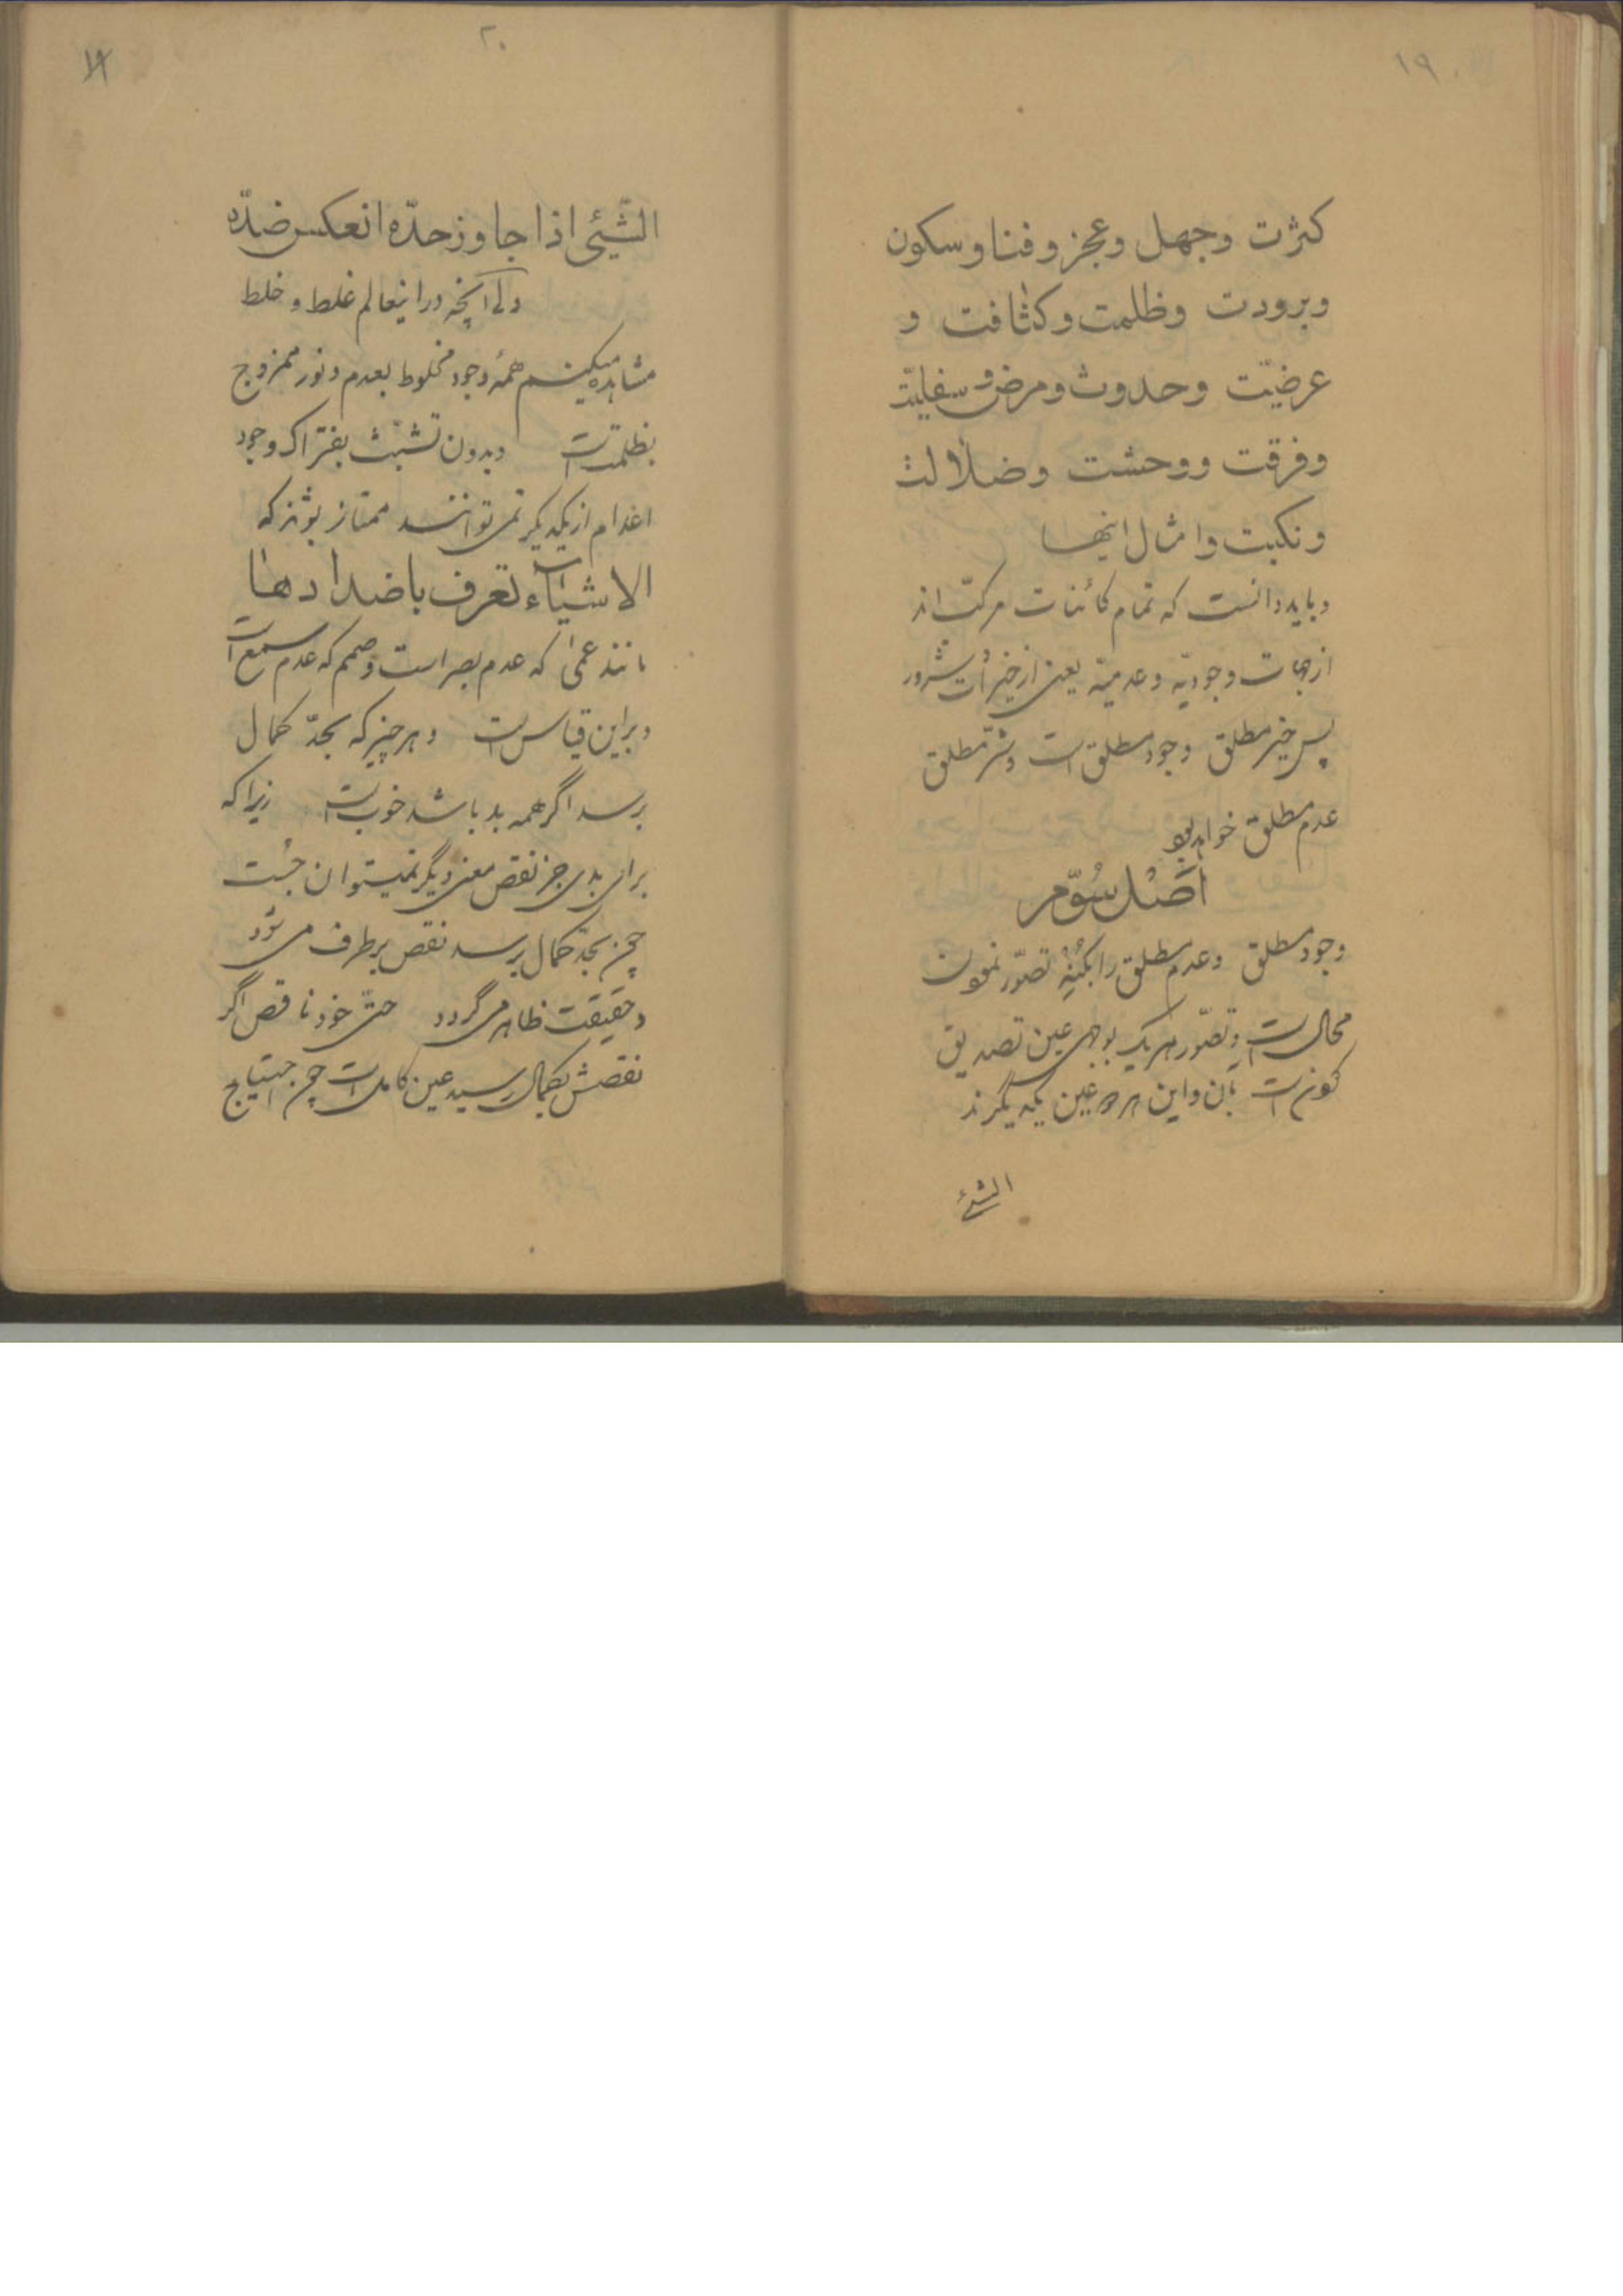 ۱۹
کثرت وجهل وعجز و فنا و سکون
وبرودت وظلمت و کثافت و
عرضیّت وحدوث ومرض و سفلیّة
وفرقت ووحشت وضلالت
ونکبت وامثال اینها
و باید دانست که تمام کائنات مرکّب‌اند
از جهات وجودیّه و عدمیّه یعنی از خیرات و شرور
پس خیر مطلق وجود مطلق است و شرّ مطلق
عدم مطلق خواهد بود
اصل سوّم
وجود مطلق وعدم مطلق را بکُنهِ تصوّر نمودن
محال است و تصوّر هر یک بوجهی عین تصدیق
کونی است بآن و این هر دو عین یکدیگرند
الشیٔ
۲۰
الشّیئ اذا جاوز حدّه انعکس ضدّه
ولی آنچه در اینعالم غلط و خلط
مشاهده میکنیم همهٔ وجود مخلوط بعدم و نور ممزوج
بظلمت است وبدون تشبّث بفتراک وجود
اعدام از یکدیگر نمی توانند ممتاز بشوند که
الاشیاء تعرف باضدادها است
مانند عمیٰ که عدم بصر است و صمم که عدم سمع است
وبراین قیاس است و هر چیز که بحدّ کمال
برسد اگر همه بد باشد خوب است زیرا که
برای بدی جز نقص معنی دیگر نمیتوان جُست
چون بحدّ کمال برسد نقص برطرف می شود
و حقیقت ظاهر می گردد حتّی خود ناقص اگر
نقصش بکمال رسید عین کامل است چون احتیاج